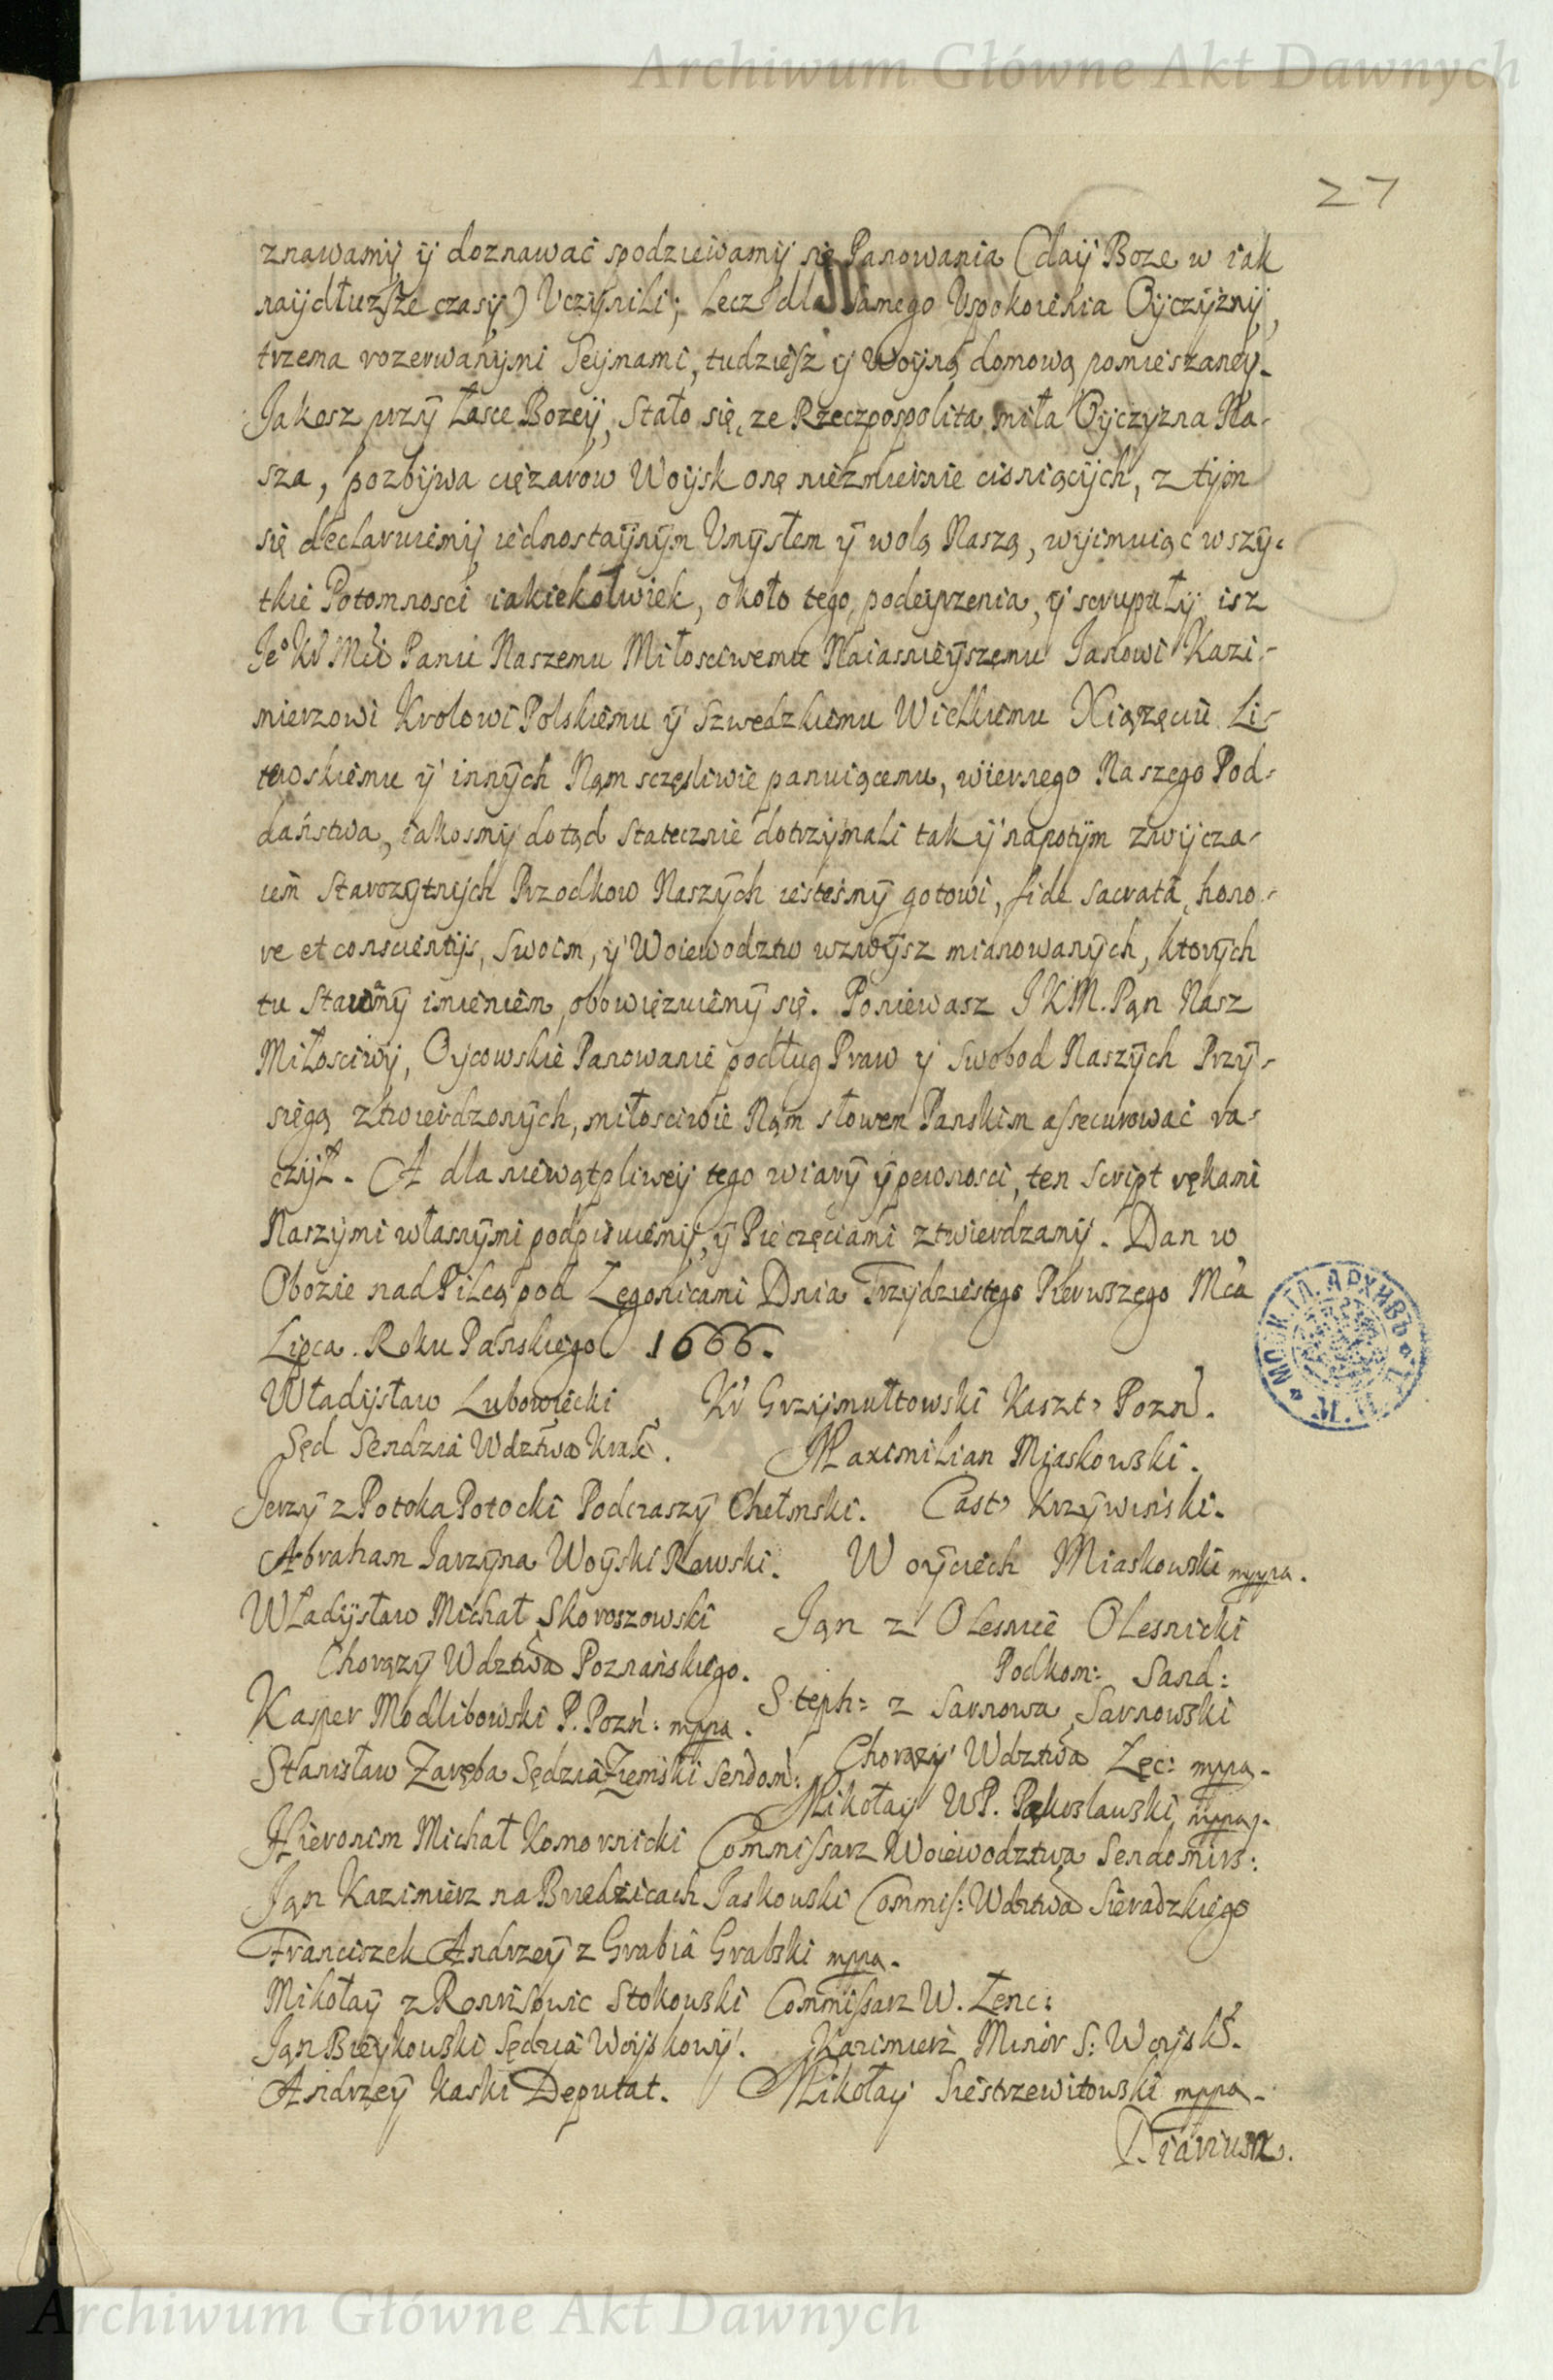 Archiwum Główne Akt Dawnych
27
znawamÿ ÿ doznawać spodziewamÿ się Panowania (daÿ Boze w iak
naÿdłuzsze czasÿ) Uczÿnili; lecz dla samego Uspokoienia Oÿczÿznÿ,
trzema rozerwanÿmi Seÿmami, tudziesz ÿ Woÿną domową pomieszaneÿ.
Jakosz przÿ Łasce Bozeÿ, Stało się, ze Rzeczpospolita miła Oÿczÿzna Na-
sza, pozbÿwa cięzarow Woÿsk onę niezmiernie cisniącÿch, z tÿm
się declaruiemÿ iednostaÿnÿm Umÿsłem ÿ wolą Naszą, wÿimuiąc wszÿ-
tkie Potomnosci iakiekolwiek, około tego, podeÿrzenia, ÿ scrupułÿ, isz
Jeo Kr Mći Panu Naszemu Miłosciwemu Naiasnieÿszemu Janowi Kazi-
mierzowi Krolowi Polskiemu ÿ Szwedzkiemu Wielkiemu Xiązęciu Li-
tewskiemu ÿ innÿch Nąm sczęsliwie panuiącemu, wiernego Naszego Pod-
daństwa, iakosmÿ dotąd statecznie dotrzÿmali tak ÿ napotÿm zwÿcza-
iem Starozÿtnÿch Przodkow Naszÿch iestesmÿ gotowi, fide sacrata, hono-
re et conscientijs, Swoim, ÿ Woiewodztw wzwÿsz mianowanÿch, ktorÿch
tu Stawamÿ imieniem, obowięzuiemÿ się. Poniewasz JKM. Pąn Nasz
Miłosciwÿ, Oÿcowskie Panowanie podług Praw ÿ Swobod Naszÿch Przÿ-
sięgą ztwierdzonÿch, miłosciwie Nąm słowem Panskim assecurować ra-
czÿł. A dla niewątpliweÿ tego wiarÿ ÿ pewnosci, ten Script rękami
Naszÿmi własnÿmi podpisuiemÿ, ÿ Pieczęciami ztwierdzamÿ. Dan w
Obozie nad Pilcą pod Lęgonicami Dnia Trzÿdziestego Pierwszego Mca
Lipca. Roku Pańskiego 1666.
Władÿsław Lubowięcki, Kr Grzÿmułtowski Kaszt: Pozn.
Sęd Sendzia Wdztwa Krak. Maximilian Miaskowski.
Jerzÿ z Potoka Potocki Podczaszÿ Chełmski. Cast: Krzÿwiński.
Abraham Jarzÿna Woÿski Rawski. Woÿciech Miaskowski mppa.
Władÿsław Michał Skoroszowski Jąn z Olesnie Olesnicki
Chorązÿ Wdztwa Poznańskiego. Podkom: Sand:
Kasper Modlibowski P. Pozń: mppa. Steph: z Sarnowa Sarnowski
Stanisław Zaręba Sędzia Ziemski Sendom: Chorązÿ Wdztwa Lęc: mppa.
Mikołaÿ WP. Pąkosławski mppa.
Hieronim Michał Komornicki Commissarz Woiewodztwa Sendomirs:
Jąn Kazimierz na Jaskowski Commis: Wdztwa Sieradzkiego
Franciszek Andrzeÿ z Grabia Grabski mppa.
Mikołaÿ z Stokowski Commissarz W. Lenc:
Jąn Sędzia Woÿskowÿ. Kazimierz Minor S: Woÿsk.
Andrzeÿ Kaski Deputat. Mikołaÿ Siestrzewitowski mppa.
Diariusz.
МОСК. ГЛ. АРХИВЪ
Archiwum Główne Akt Dawnych